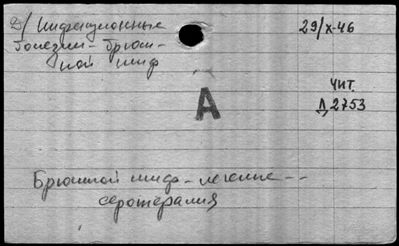 2/ Инфекционные
болезни - брюш-
ной тиф
29/X-46
А
ЧИТ.
Д 2753
Брюшной тиф - лечение --
серотерапия